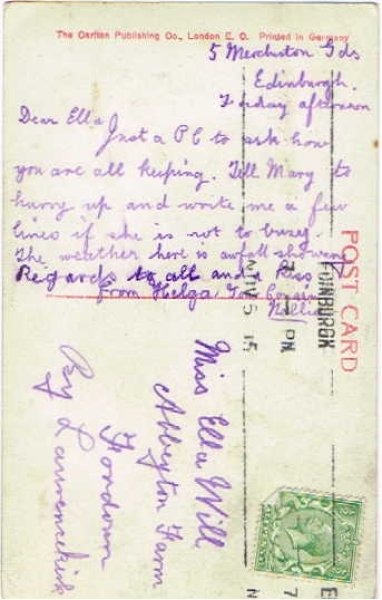 The Carlton Publishing Co., London E. C. Printed in Germany
5 Merchiston Gds
Edinburgh.
Friday afternoon
Dear Ella
Just a PC to ask how
you are all keeping. Tell Mary to
hurry up and write me a few
lines if she is not to busey.
The weather here is awfall showery
Regards to all and a kiss
from Helga, Your Cousin
Nellie
POST CARD
EDINBURGH
7 — PM
5 15
Miss Ella Will
Abbeyton Farm
Fordoun
By Laurencekirk